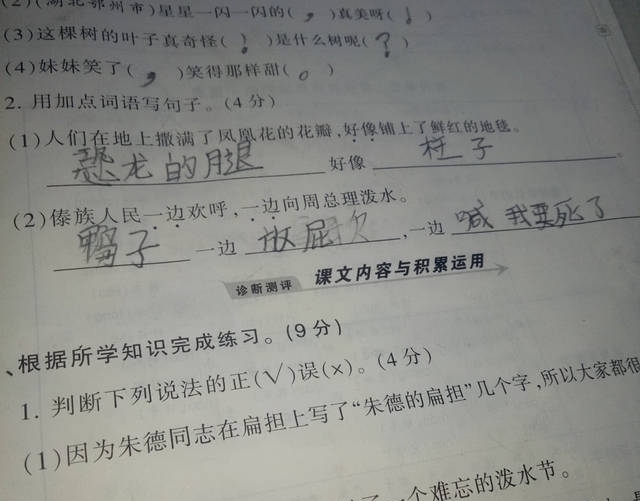 2)(湖北鄂州市)星星一闪一闪的( , )真美呀( ! )
(3)这棵树的叶子真奇怪( ! )是什么树呢( ? )
(4)妹妹笑了( , )笑得那样甜( 。 )
2. 用加点词语写句子。(4分)
(1)人们在地上撒满了凤凰花的花瓣,好像铺上了鲜红的地毯。
恐龙的腿 好像 柱子
(2)傣族人民一边欢呼,一边向周总理泼水。
鸭子 一边 放屁 ,一边 喊 我要死了
诊断测评 课文内容与积累运用
、根据所学知识完成练习。(9分)
1. 判断下列说法的正(√)误(×)。(4分)
(1)因为朱德同志在扁担上写了“朱德的扁担”几个字,所以大家都很
一个难忘的泼水节。